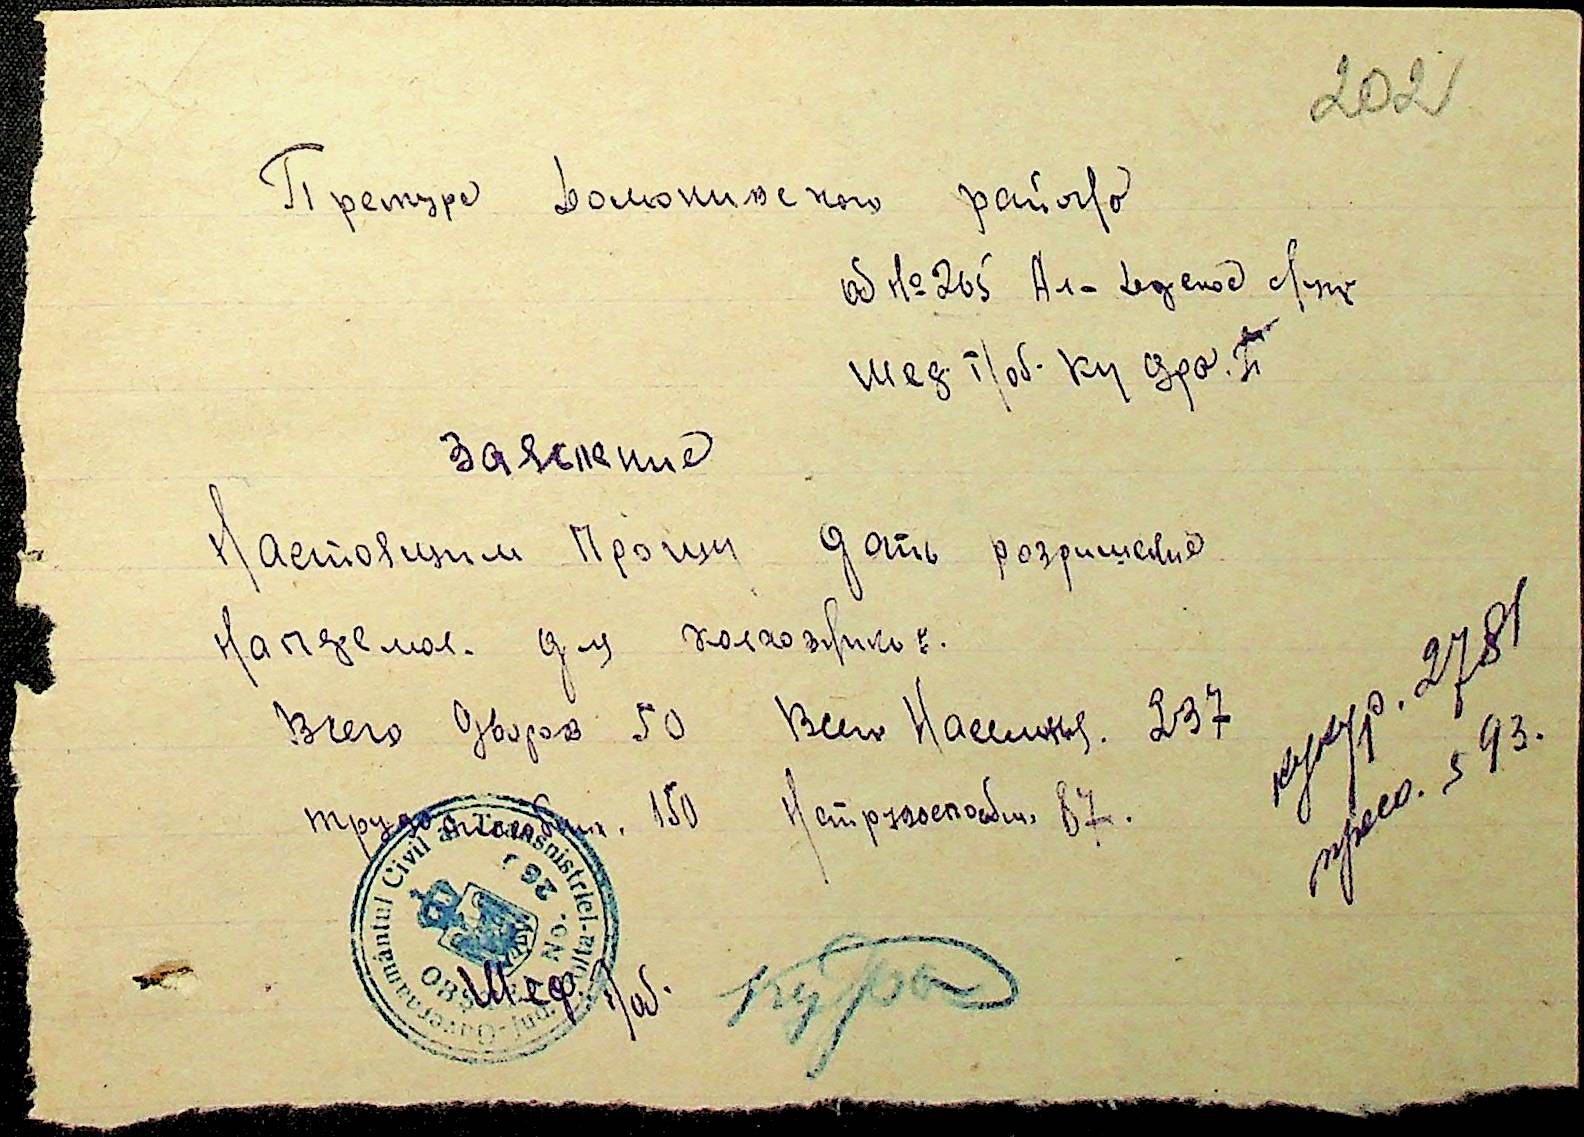 202
Претуре Доманивского района
об №265
Шеф т/об. Кудра. П
Заявление
Настоящим Прошу дать розришение
На для колхозников.
Всего Дворов 50 Всего Населения. 237
трудоспособных. 150 Нетрудоспособн. 87.
кукур. 2781
просо. 593.
Guvernământul Civil al Transnistriei-Jud.
No. 26
Шеф т/об. Кудра